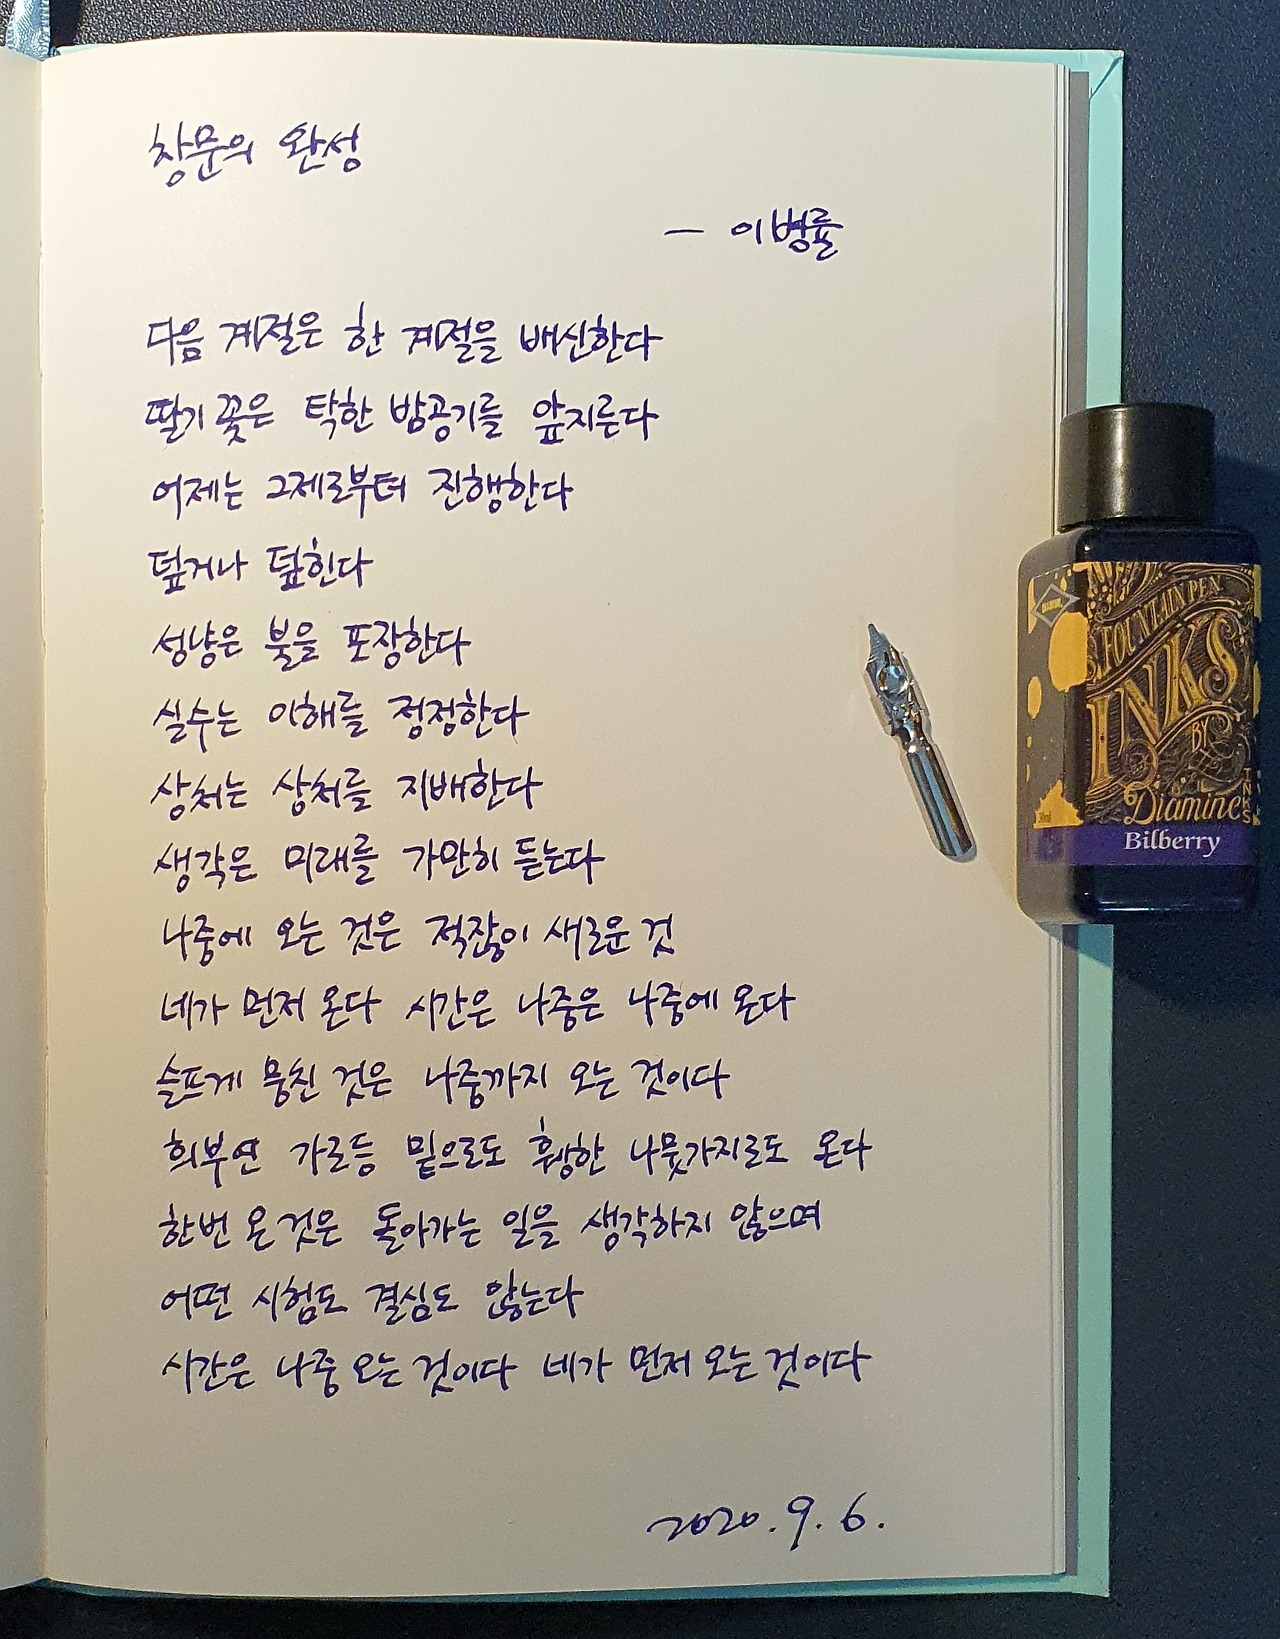 창문의 완성
— 이병률
다음 계절은 한 계절을 배신한다
딸기 꽃은 탁한 밤공기를 앞지른다
어제는 그제로부터 진행한다
덮거나 덮힌다
성냥은 불을 포장한다
실수는 이해를 정정한다
상처는 상처를 지배한다
생각은 미래를 가만히 듣는다
나중에 오는 것은 적잖이 새로운 것
네가 먼저 온다 시간은 나중은 나중에 온다
슬프게 뭉친 것은 나중까지 오는 것이다
희부연 가로등 밑으로도 휑한 나뭇가지로도 온다
한번 온 것은 돌아가는 일을 생각하지 않으며
어떤 시험도 결심도 않는다
시간은 나중 오는 것이다 네가 먼저 오는 것이다
2020. 9. 6.
FOUNTAIN PEN
INKS
BY
Diamine
INKS
Bilberry